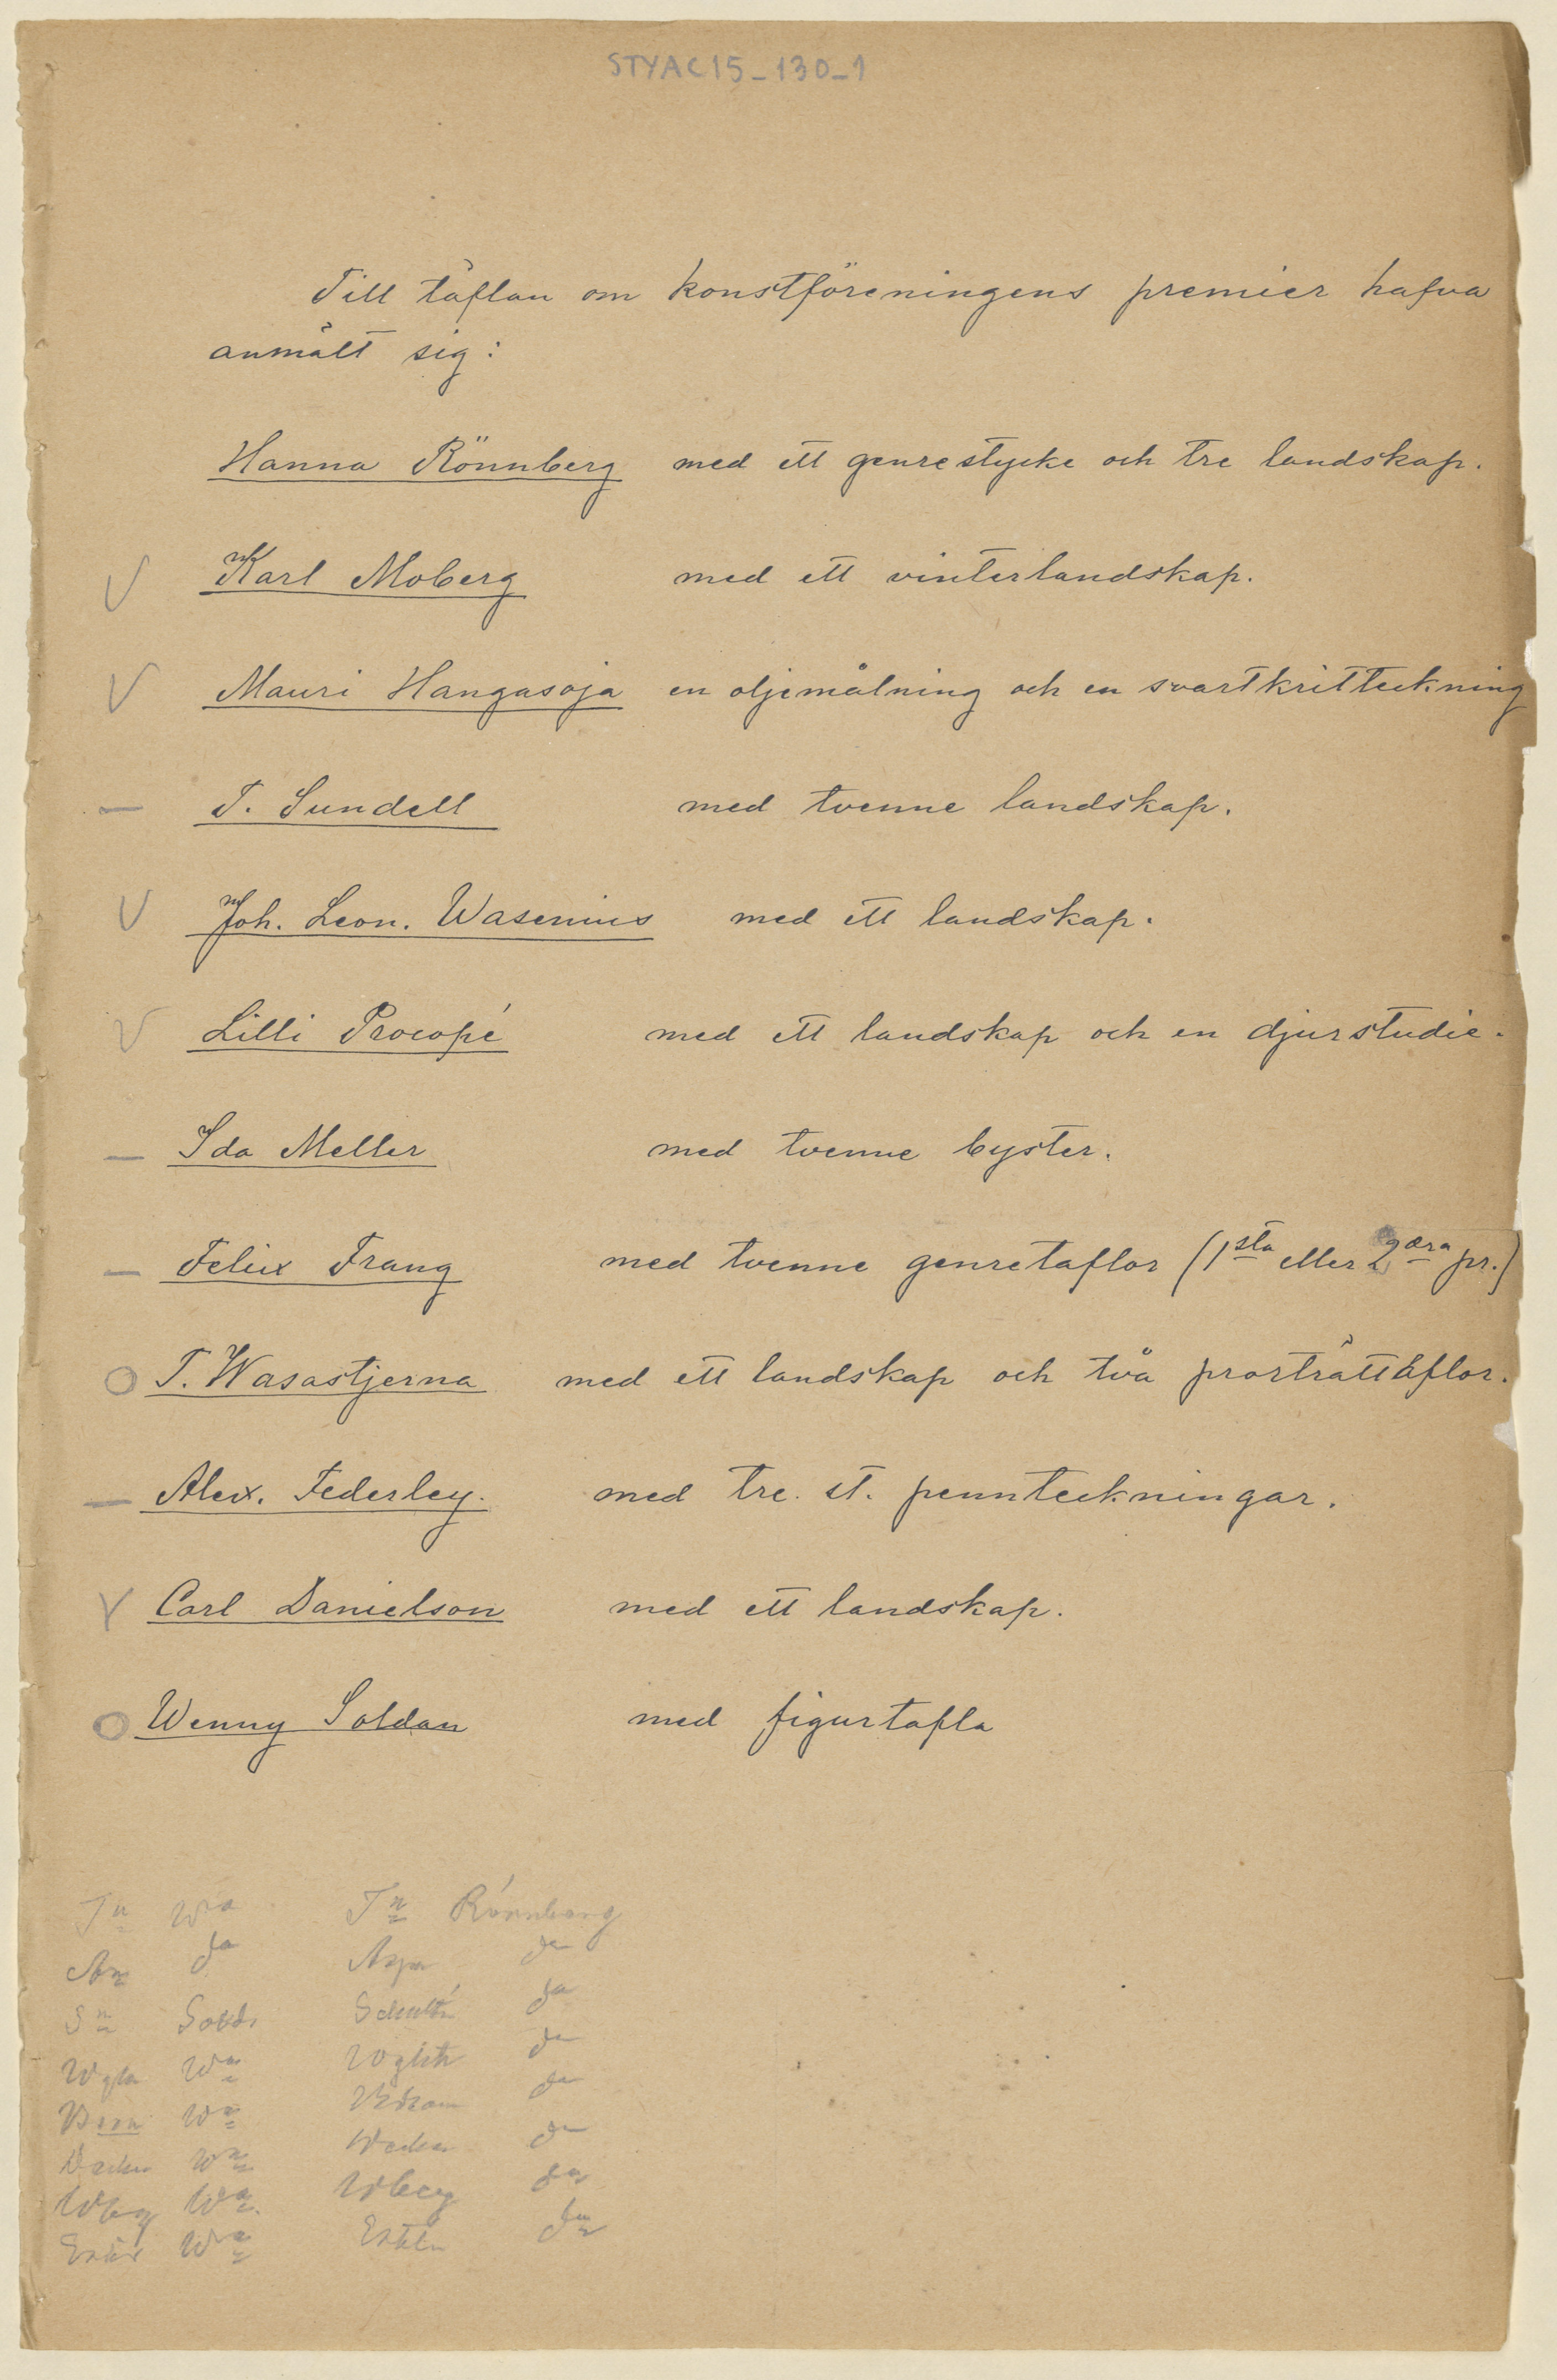 STYAC15_130_1
Till täflan om konstföreningens premier hafva
anmält sig:
Hanna Rönnberg med ett genrestycke och tre landskap.
V Karl Moberg med ett vinterlandskap.
V Mauri Hangasoja en oljemålning och en svartkritteckning
— T. Sundell med tvenne landskap.
V Joh. Leon. Wasenius med ett landskap.
V Lilli Procopé med ett landskap och en djurstudie.
— Ida Meller med tvenne byster.
— Felix Frang med tvenne genretaflor (1sta eller 2dra pr.)
O T. Wasastjerna med ett landskap och två prorträttäflor.
— Alex. Federley. med tre. st. pennteckningar.
V Carl Danielson med ett landskap.
O Wenny Soldan med figurtafla
Tn Wa Tn Rönnberg
Ja Aspn Ja
Sn Sold. Schultén Ja
Wa Ja
Wa Ja
Wa Ja
Wa Wberg Ja
Wa Ja